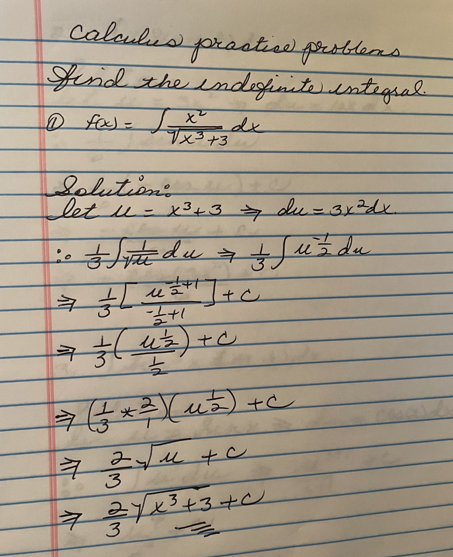 Calculus practice problems
find the indefinite integral.
① f(x) = ∫ x²/√(x³+3) dx
Solution:
let u = x³+3 ⇒ du = 3x²dx.
∴ 1/3 ∫ 1/√u du ⇒ 1/3 ∫ u^(-1/2) du
⇒ 1/3 [ u^(-1/2+1) / (-1/2+1) ] + C
⇒ 1/3 ( u^(1/2) / (1/2) ) + C
⇒ (1/3 * 2/1)(u^(1/2)) + C
⇒ 2/3 √u + C
⇒ 2/3 √(x³+3) + C